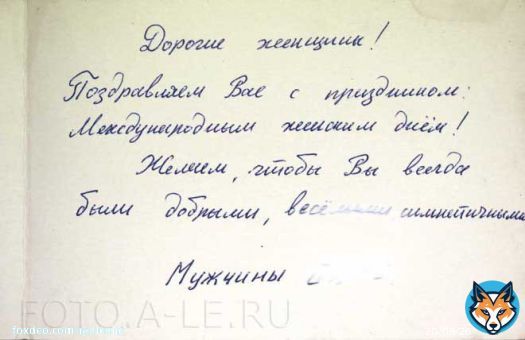 Дорогие женщины!
Поздравляем Вас с праздником:
Международным женским днём!
Желаем, чтобы Вы всегда
были добрыми, весёлыми, симпатичными
Мужчины
FOTO.A-LE.RU